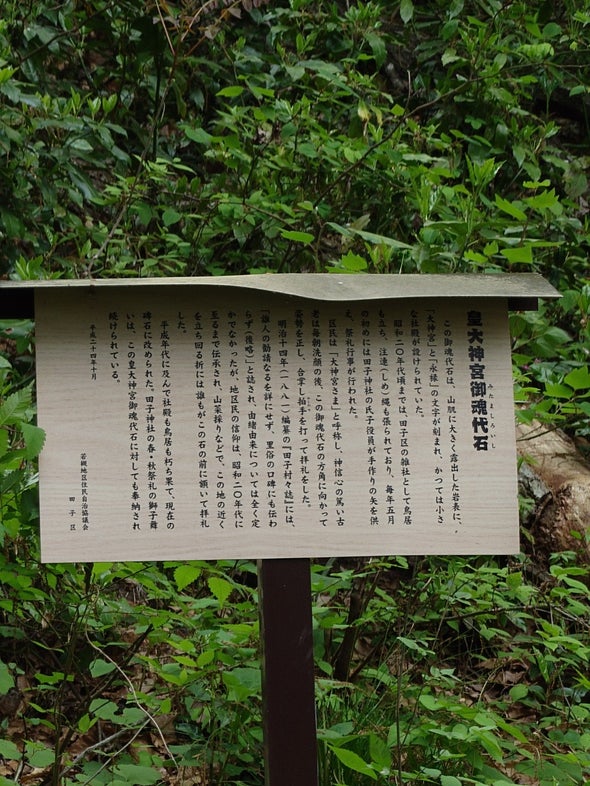 皇大神宮御魂代石
みたましろいし
この御魂代石は、山肌に大きく露出した岩表に、
「太神宮」と「永禄」の文字が刻まれ、かつては小さ
な社殿が設けられていた。
昭和二〇年代頃までは、田子区の雑社として鳥居
も立ち、注連(しめ)縄も張られており、毎年五月
の初めには田子神社の氏子役員が手作りの矢を供
え、祭礼行事が行われた。
区民は「大神宮さま」と呼称し、神信心の篤い古
老は毎朝洗顔の後、この御魂代石の方角に向かって
姿勢を正し、合掌し拍手を打って拝礼をした。
明治十四年(一八八一)編纂の『田子村々誌』には、
「雖人の勧請なるを詳にせず、里俗の口碑にも伝わ
らず(後略)」と誌され、由緒由来については全く定
かでなかったが、地区民の信仰は、昭和二〇年代に
至るまで伝承され、山菜採りなどで、この地の近く
を立ち回る折には誰もがこの石の前に額いて拝礼
した。
平成年代に及んで社殿も鳥居も朽ち果て、現在の
碑石に改められた。田子神社の春・秋祭礼の獅子舞
いは、この皇大神宮御魂代石に対しても奉納され
続けられている。
平成二十四年十月
若槻地区住民自治協議会
田子区